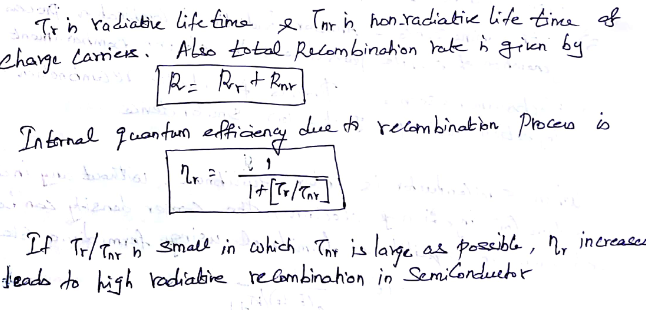 τr is radiative life time & τnr is non.radiative life time of
charge carriers. Also total Recombination rate is given by
R = Rr + Rnr
Internal quantum efficiency due to recombination process is
ηr = 1 / 1+[τr/τnr]
If τr/τnr is small in which τnr is large as possible, ηr increases
leads to high radiative recombination in Semiconductor